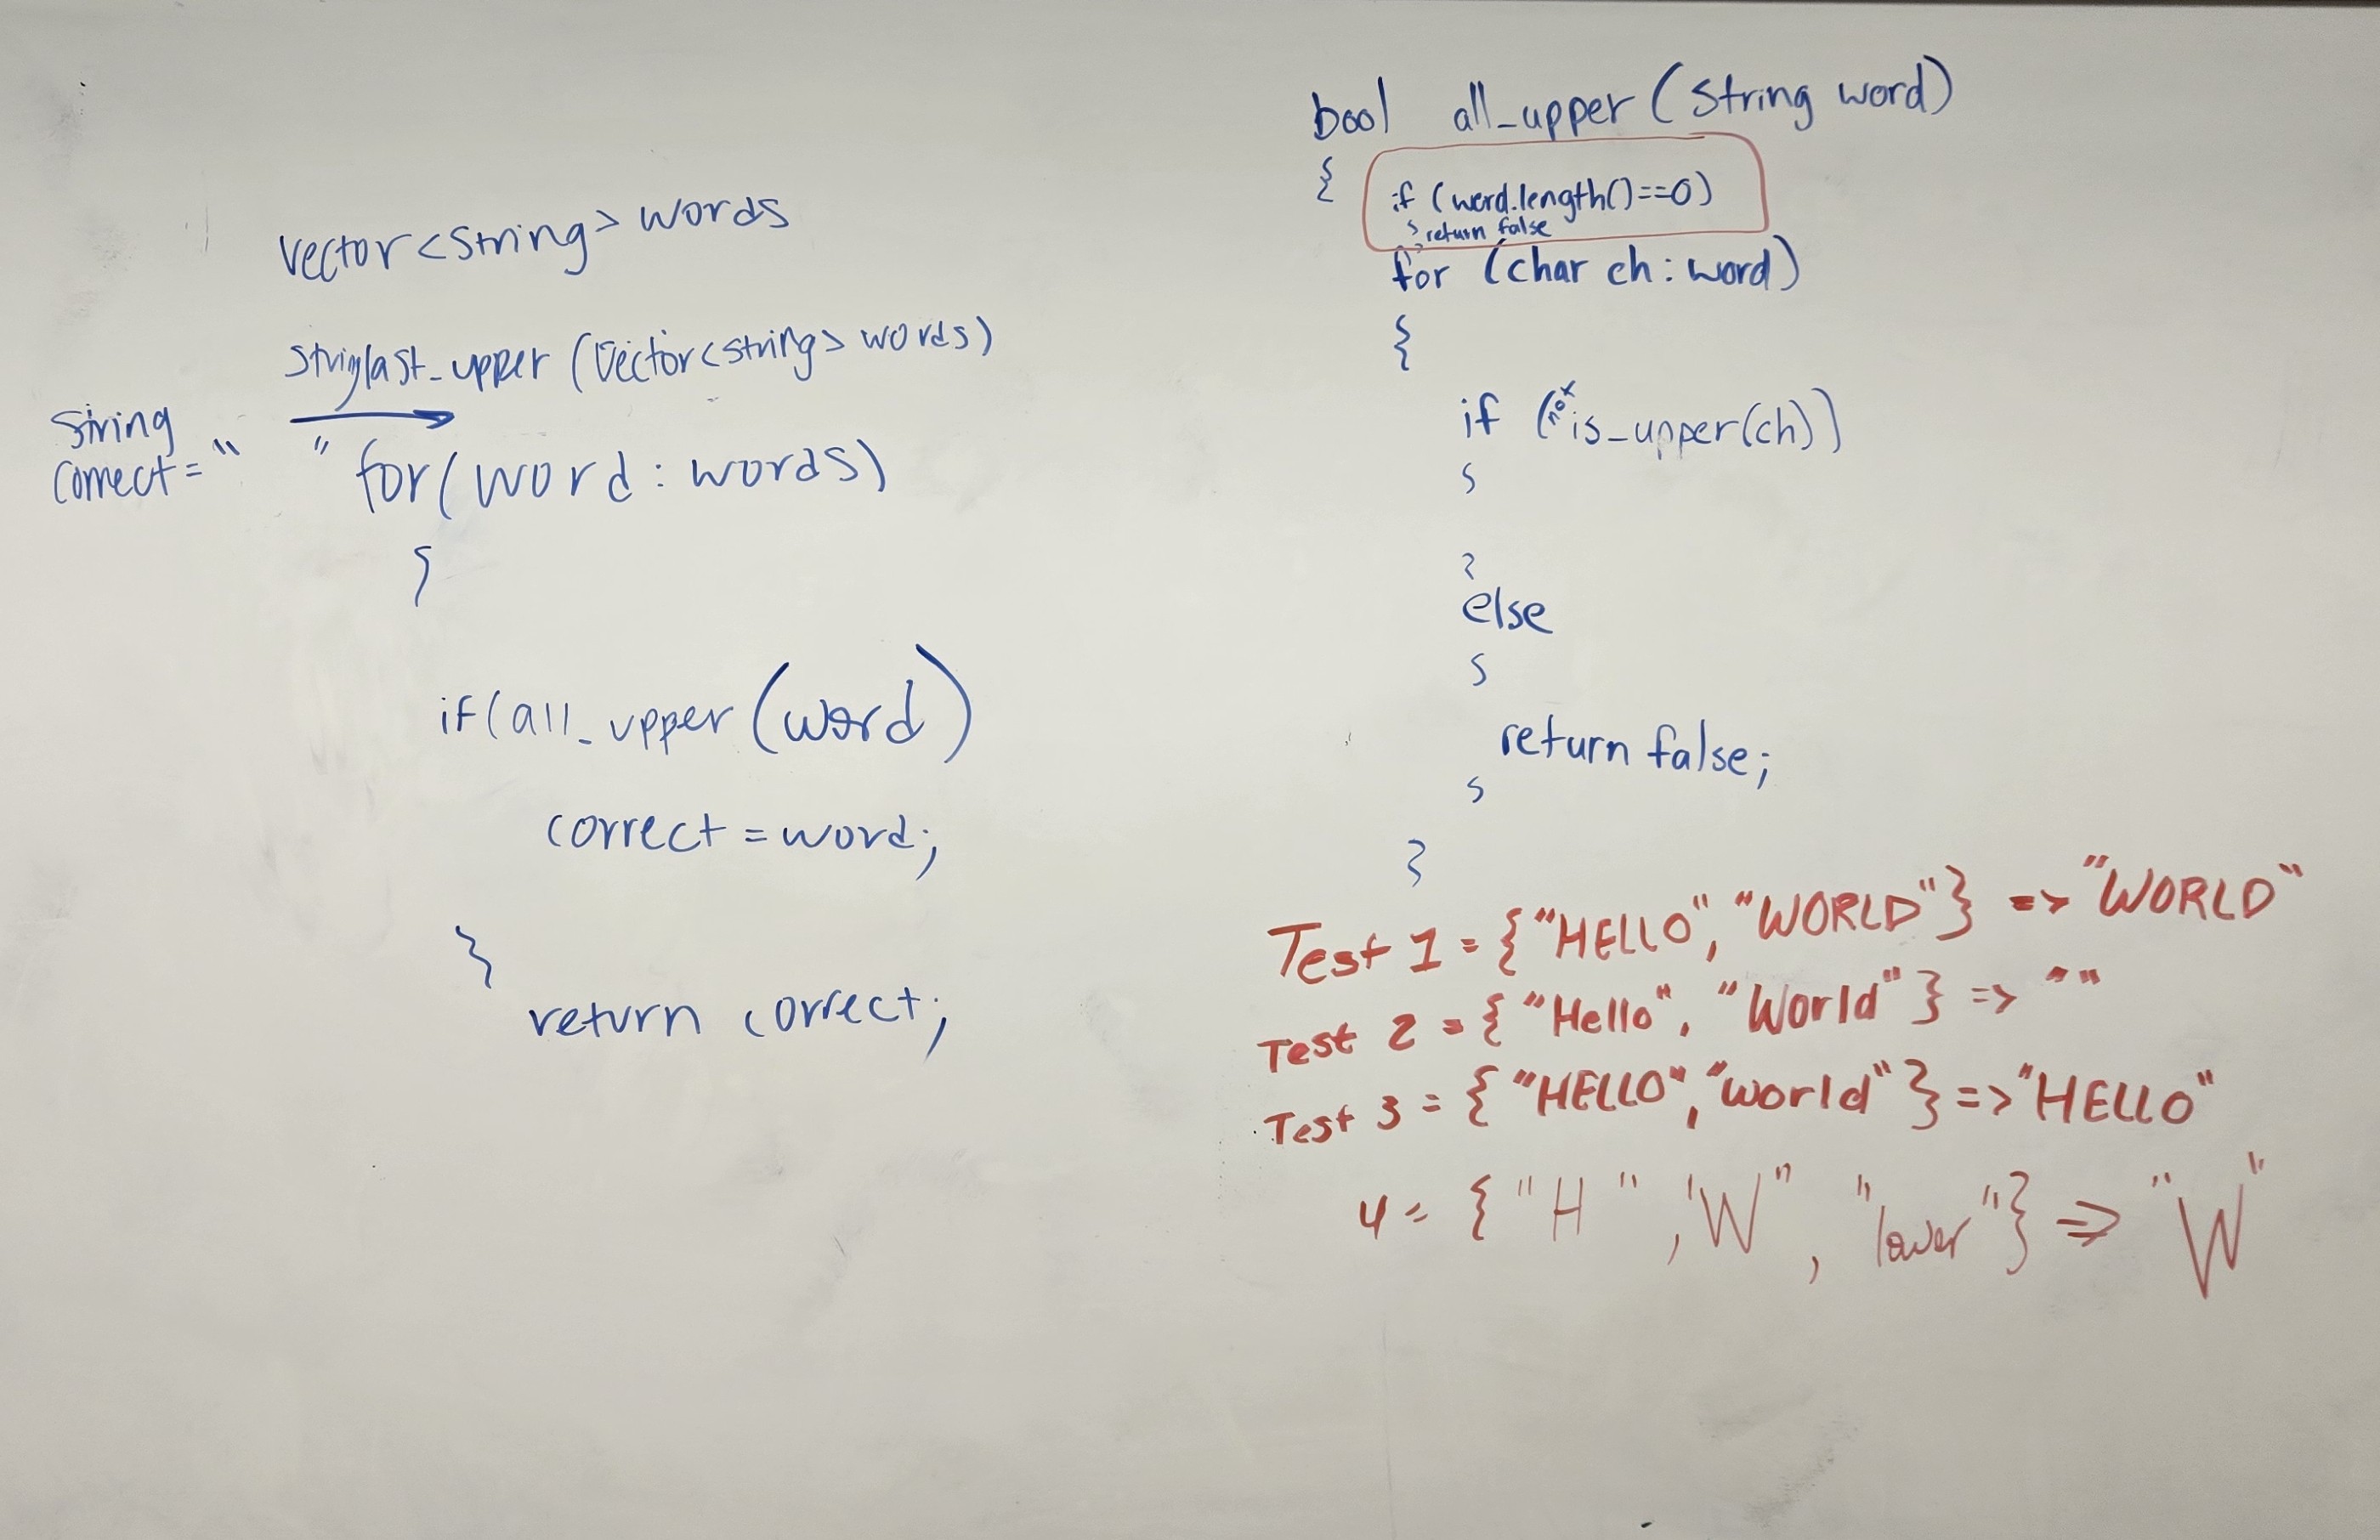 vector<string> words
string last_upper (vector<string> words)
string
correct = " " for(word : words)
{
if(all_upper(word)
correct = word;
}
return correct;
bool all_upper (string word)
{
if (word.length()==0)
{ return false
for (char ch : word)
{
if (not is_upper(ch))
{
}
else
{
return false;
}
}
Test 1 = {"HELLO", "WORLD"} => "WORLD"
Test 2 = {"Hello", "World"} => ""
Test 3 = {"HELLO", "world"} => "HELLO"
4 = {"H", "W", "lower"} => "W"